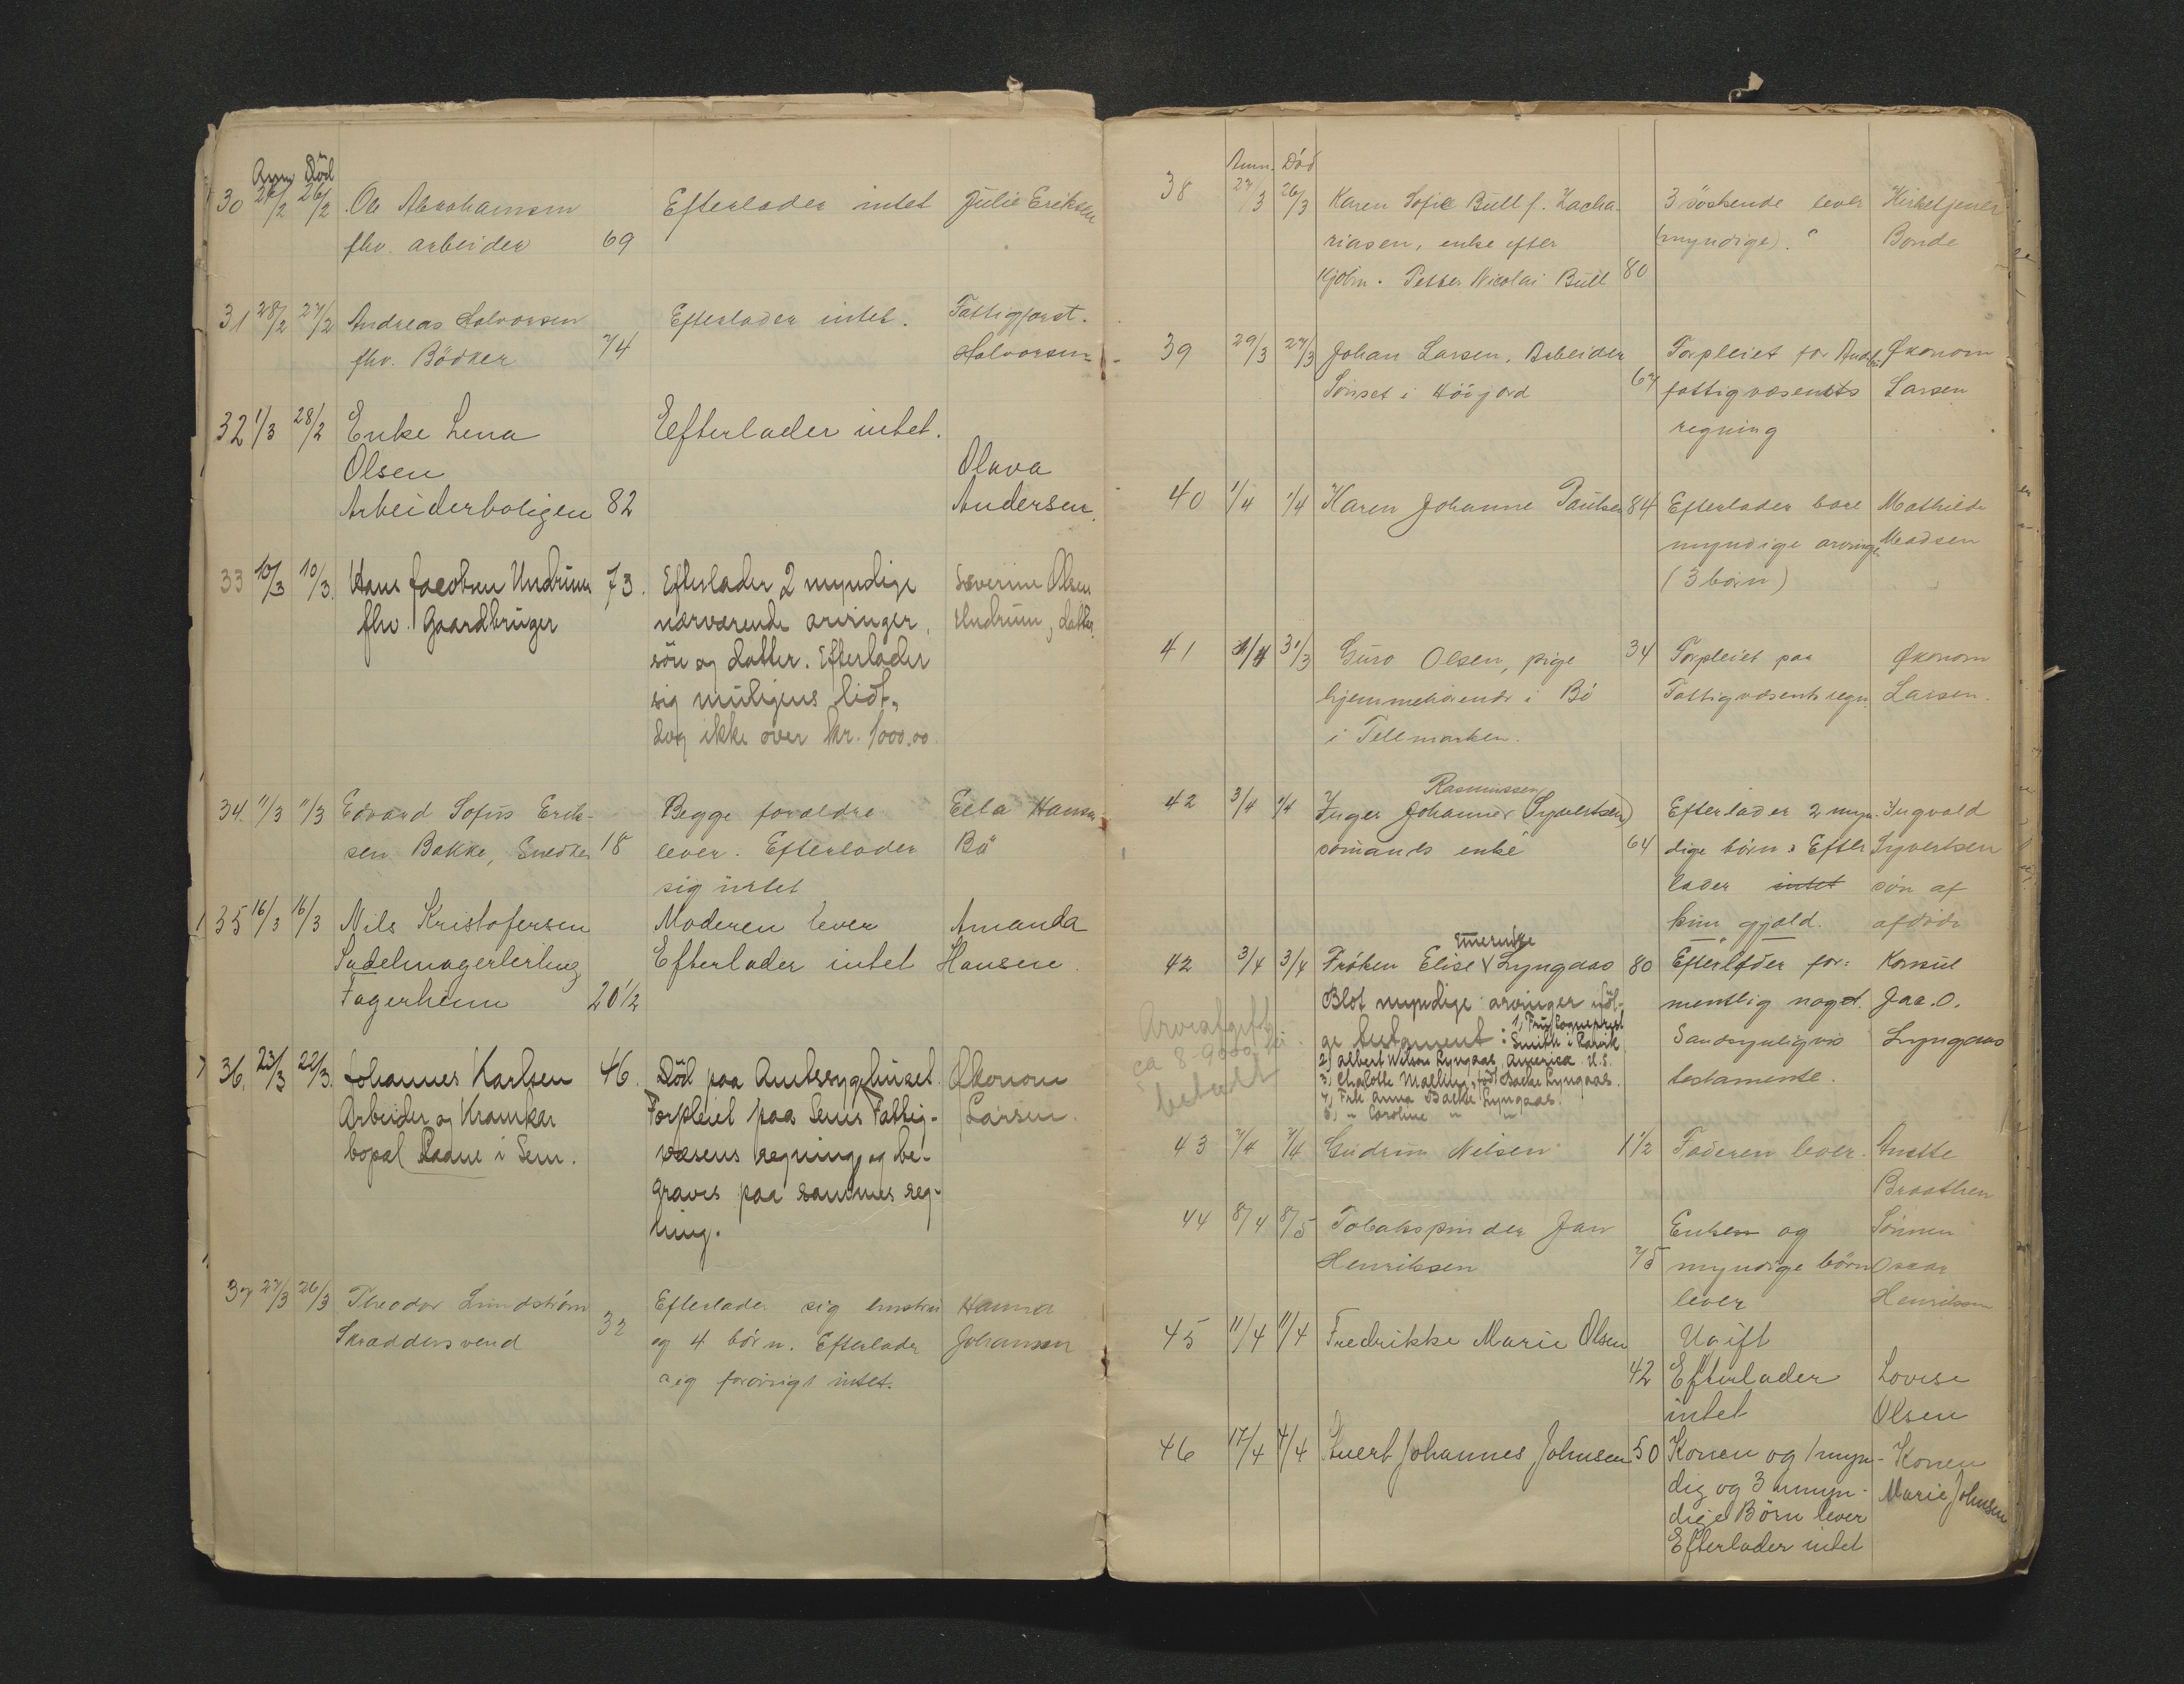 Anm Död
30 26/2 26/2 Ole Abrahamsen Efterlader intet Julie Eriksen
fhv. arbeider 69
31 28/2 27/2 Andreas Halvorsen Efterlader intet. Fattigforst.
fhv. Bödker 74 Halvorsen
32 1/3 28/2 Enke Lena Eefterlader intet.
Olsen Olava
Arbeiderboligen 82 Andersen.
33 10/3 10/3. Hans Jacobsen Undrum 73. Efterlader 2 myndige Severine Olsen
fhv. Gaardbruger nærværende arvinger, Undrum, datter
sön og datter. Efterlader
sig muligens lidt,
dog ikke over kr. 1000.00.
34. 11/3 11/3 Edvard Sofus Erik- Begge forældre Ella Hansen
sen Bakke, Snedker 18 lever. Efterlader Bö
sig intet
35 16/3 16/3 Nils Kristofersen Moderen lever Amanda
Sadelmagerlerling Efterlader intet Hansen.
Fagerheim 20 1/2
36. 23/3 22/3. Johannes Karlsen 46. Död paa Amtssygehuset. Økonom
Arbeider og Kramkar Forpleiet paa Sems Fattig- Larsen.
bopæl Raane i Sem. væsens regning og be-
graves paa sammes reg-
ning.
37 27/3 26/3 Theodor Lundström Efterlader sig hustru Hanna
Skræddersvend 32 og 4 börn. Efterlader Johansen
sig forövrigt intet.
Anm. Död
38 27/3 26/3 Karen Sofie Bull f. Zacha- 3 söskende lever Kirketjener
riasen, enke efter (myndige). Bonde
Kjöbm. Petter Nicolai Bull 80
39 29/3 27/3 Johan Larsen, Arbeider Forpleiet for Andebu Økonom
Sönset i Höijord 67 fattigvæsents Larsen
regning
40 1/4 1/4 Karen Johanne Paulsen 84 Efterlader bare Mathilde
myndige arvinger Madsen
(3 börn)
41 1/4 31/3 Guro Olsen, pige 34 Forpleiet paa Økonom
hjemmehörende i Bö Fattigvæsents regn. Larsen.
i Tellemarken.
Rasmussen
42 3/4 1/4 Inger Johanne (Syvertsen) Efterlader 2 myn- Ingvald
sömands enke 64 dige börn. Efter Syvertsen
lader intet sön af
kun gjæld. afdöde
42 3/4 3/4 Fröken Elise Lyngaas 80 Efterlader for- Konsul
Blot myndige arvinger iföl- mentlig noget. Jac. O.
ge testament: 1, Fru Sogneprest Sandsynligvis Lyngaas
Smith i Ranvik testamente.
2) Albert Wilson Lyngaas, America U.S.
3, Chalotte Malling, född Backe Lyngaas.
4, Frk Anna Backe Lyngaas.
5, " Caroline " "
Arveafgift
ca 8-9000 kr
betalt
43 7/4 7/4 Gudrun Nilsen 1 1/2 Faderen lever. Anette
Braathen
44 8/4 8/5 Tobakspinder Jan Enken og Sönnen
Henriksen 75 myndige börn Oscar
lever Henriksen
45 11/4 11/4 Fredrikke Marie Olsen Ugift
42 Efterlader Lovise
intet Olsen
46 17/4 17/4 Evert Johannes Johnsen 50 Konen og 1 myn- Konen
dig og 3 umyn- Marie Johnsen
dige Börn lever
Efterlader intet